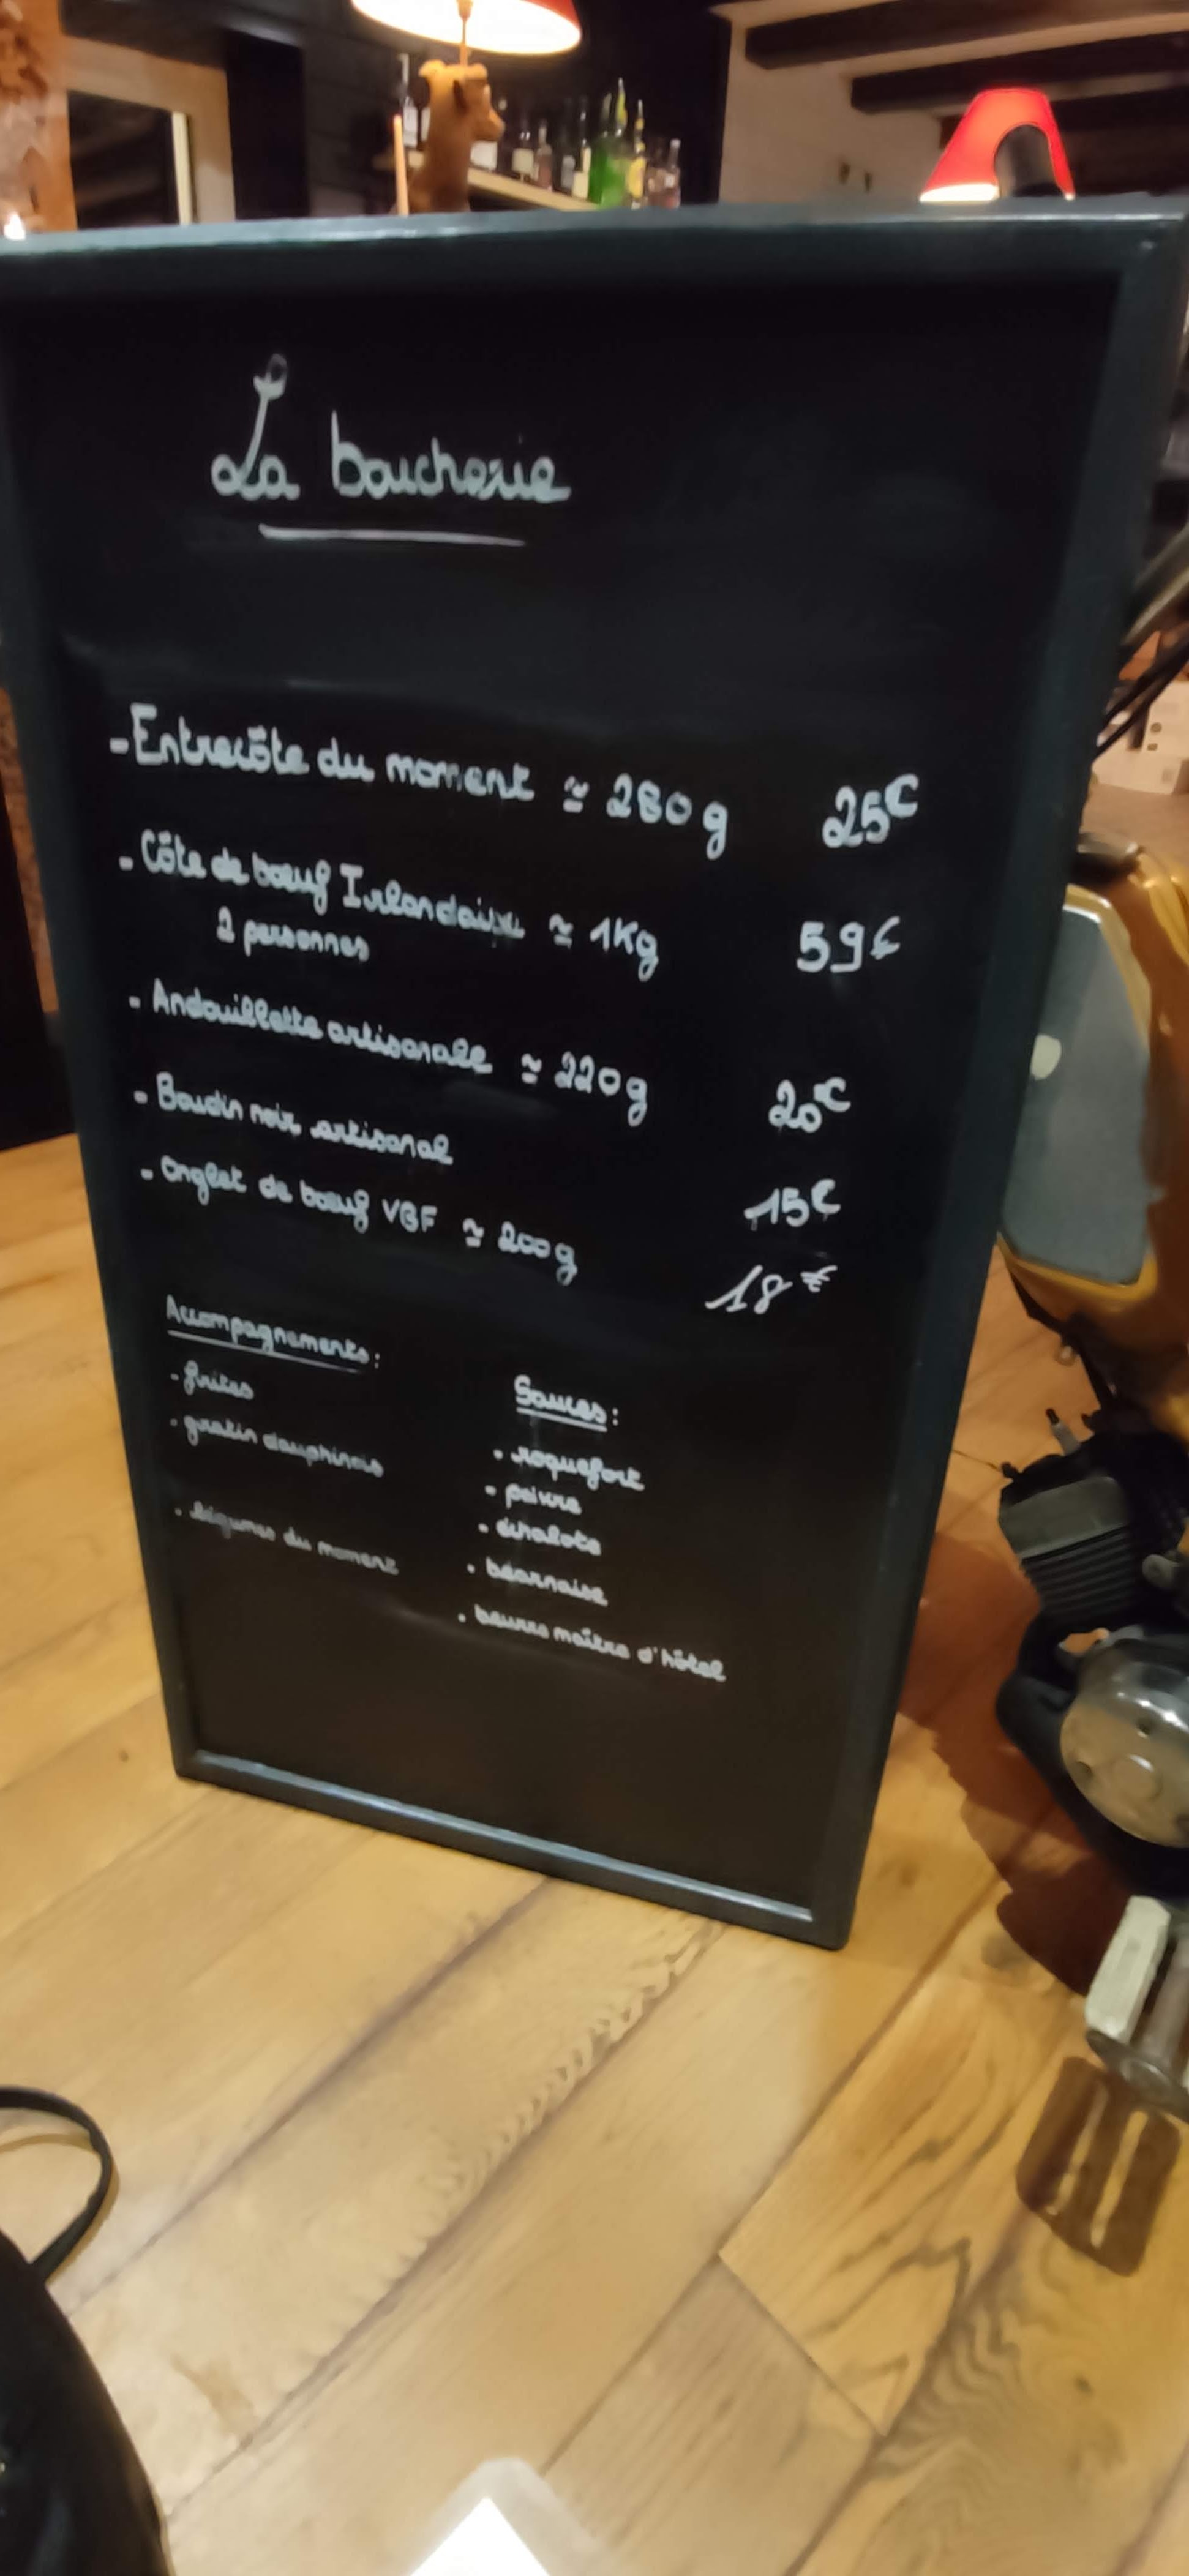 La boucherie
- Entrecôte du moment ≃ 280g 25€
- Côte de boeuf Irlandaise ≃ 1Kg 59€
2 personnes
- Andouillette artisanale ≃ 220g 20€
- Boudin noir artisanal 15€
- Onglet de boeuf VBF ≃ 200g 18€
Accompagnements:
- frites
- gratin dauphinois
- légumes du moment
Sauces:
- roquefort
- poivre
- échalote
- béarnaise
- beurre maître d'hôtel